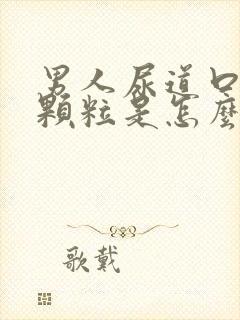 男人尿道口
顆粒是怎麼
歌戴